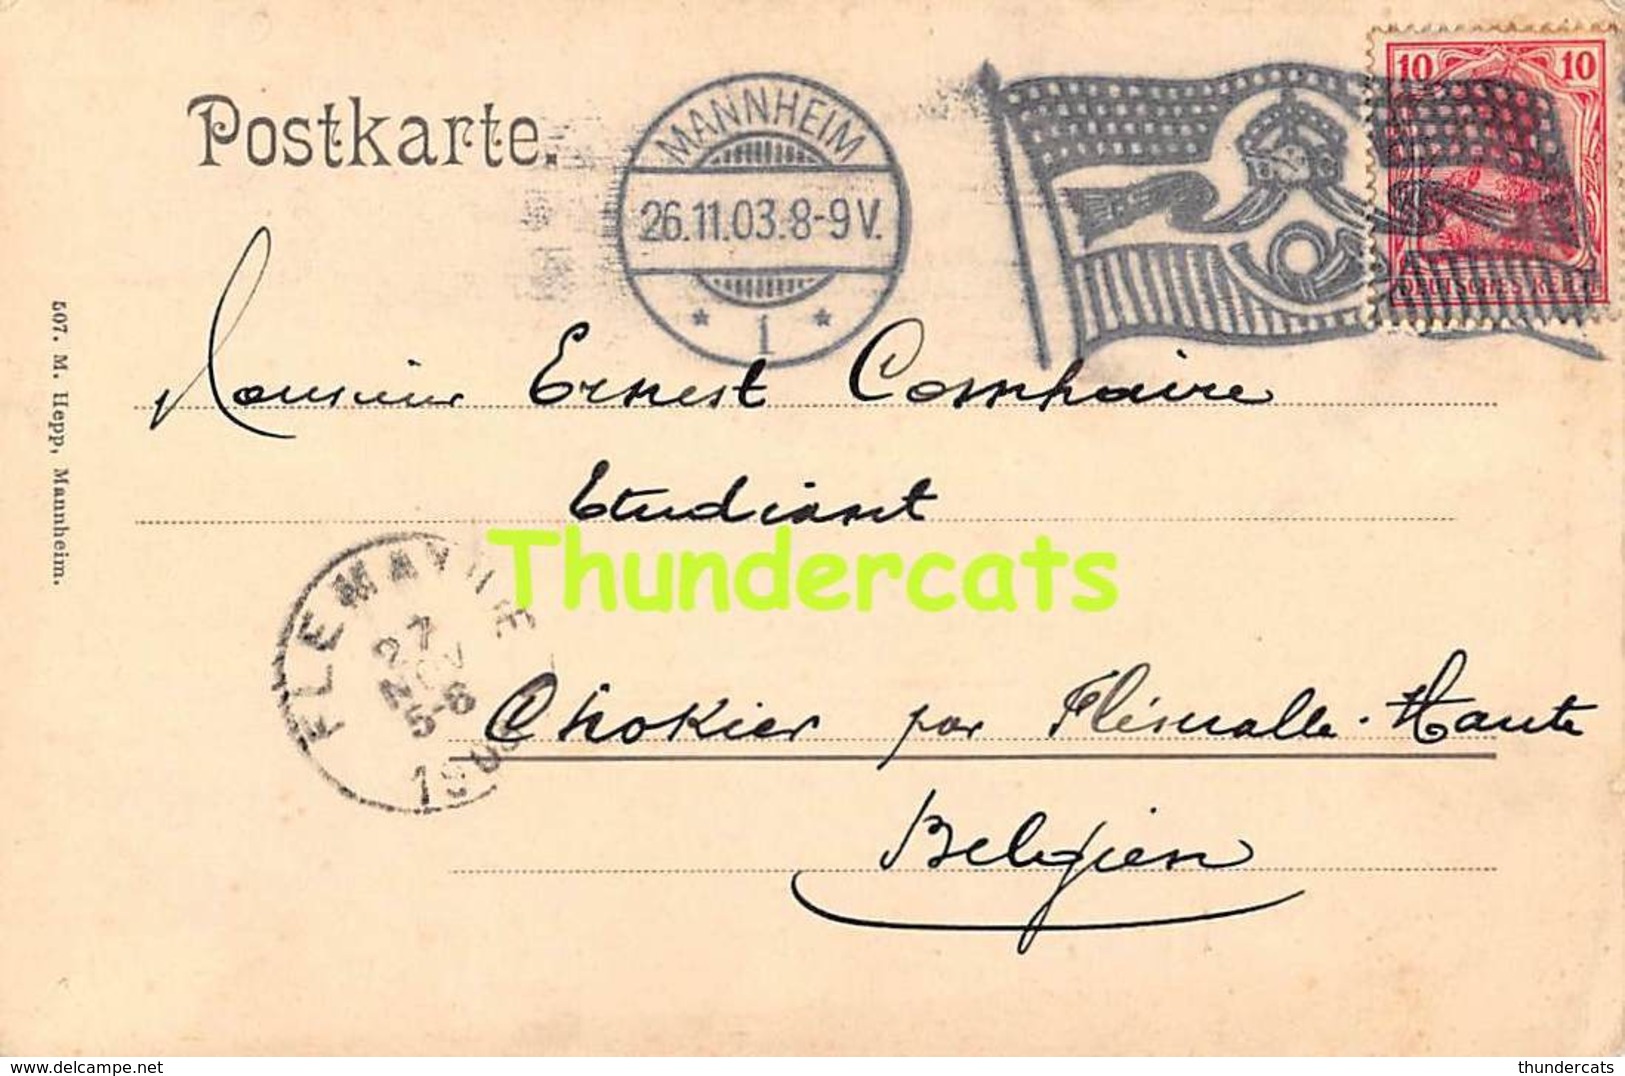 Postkarte.
MANNHEIM
26.11.03.8-9V.
* 1 *
10 10
DEUTSCHES REICH
507. M. Hepp, Mannheim.
Monsieur Ernest Comhaire
Etudiant
Thundercats
27
NOV
5-6
Chokier par Flémalle-Haute
Belgien
delcampe.net
thundercats